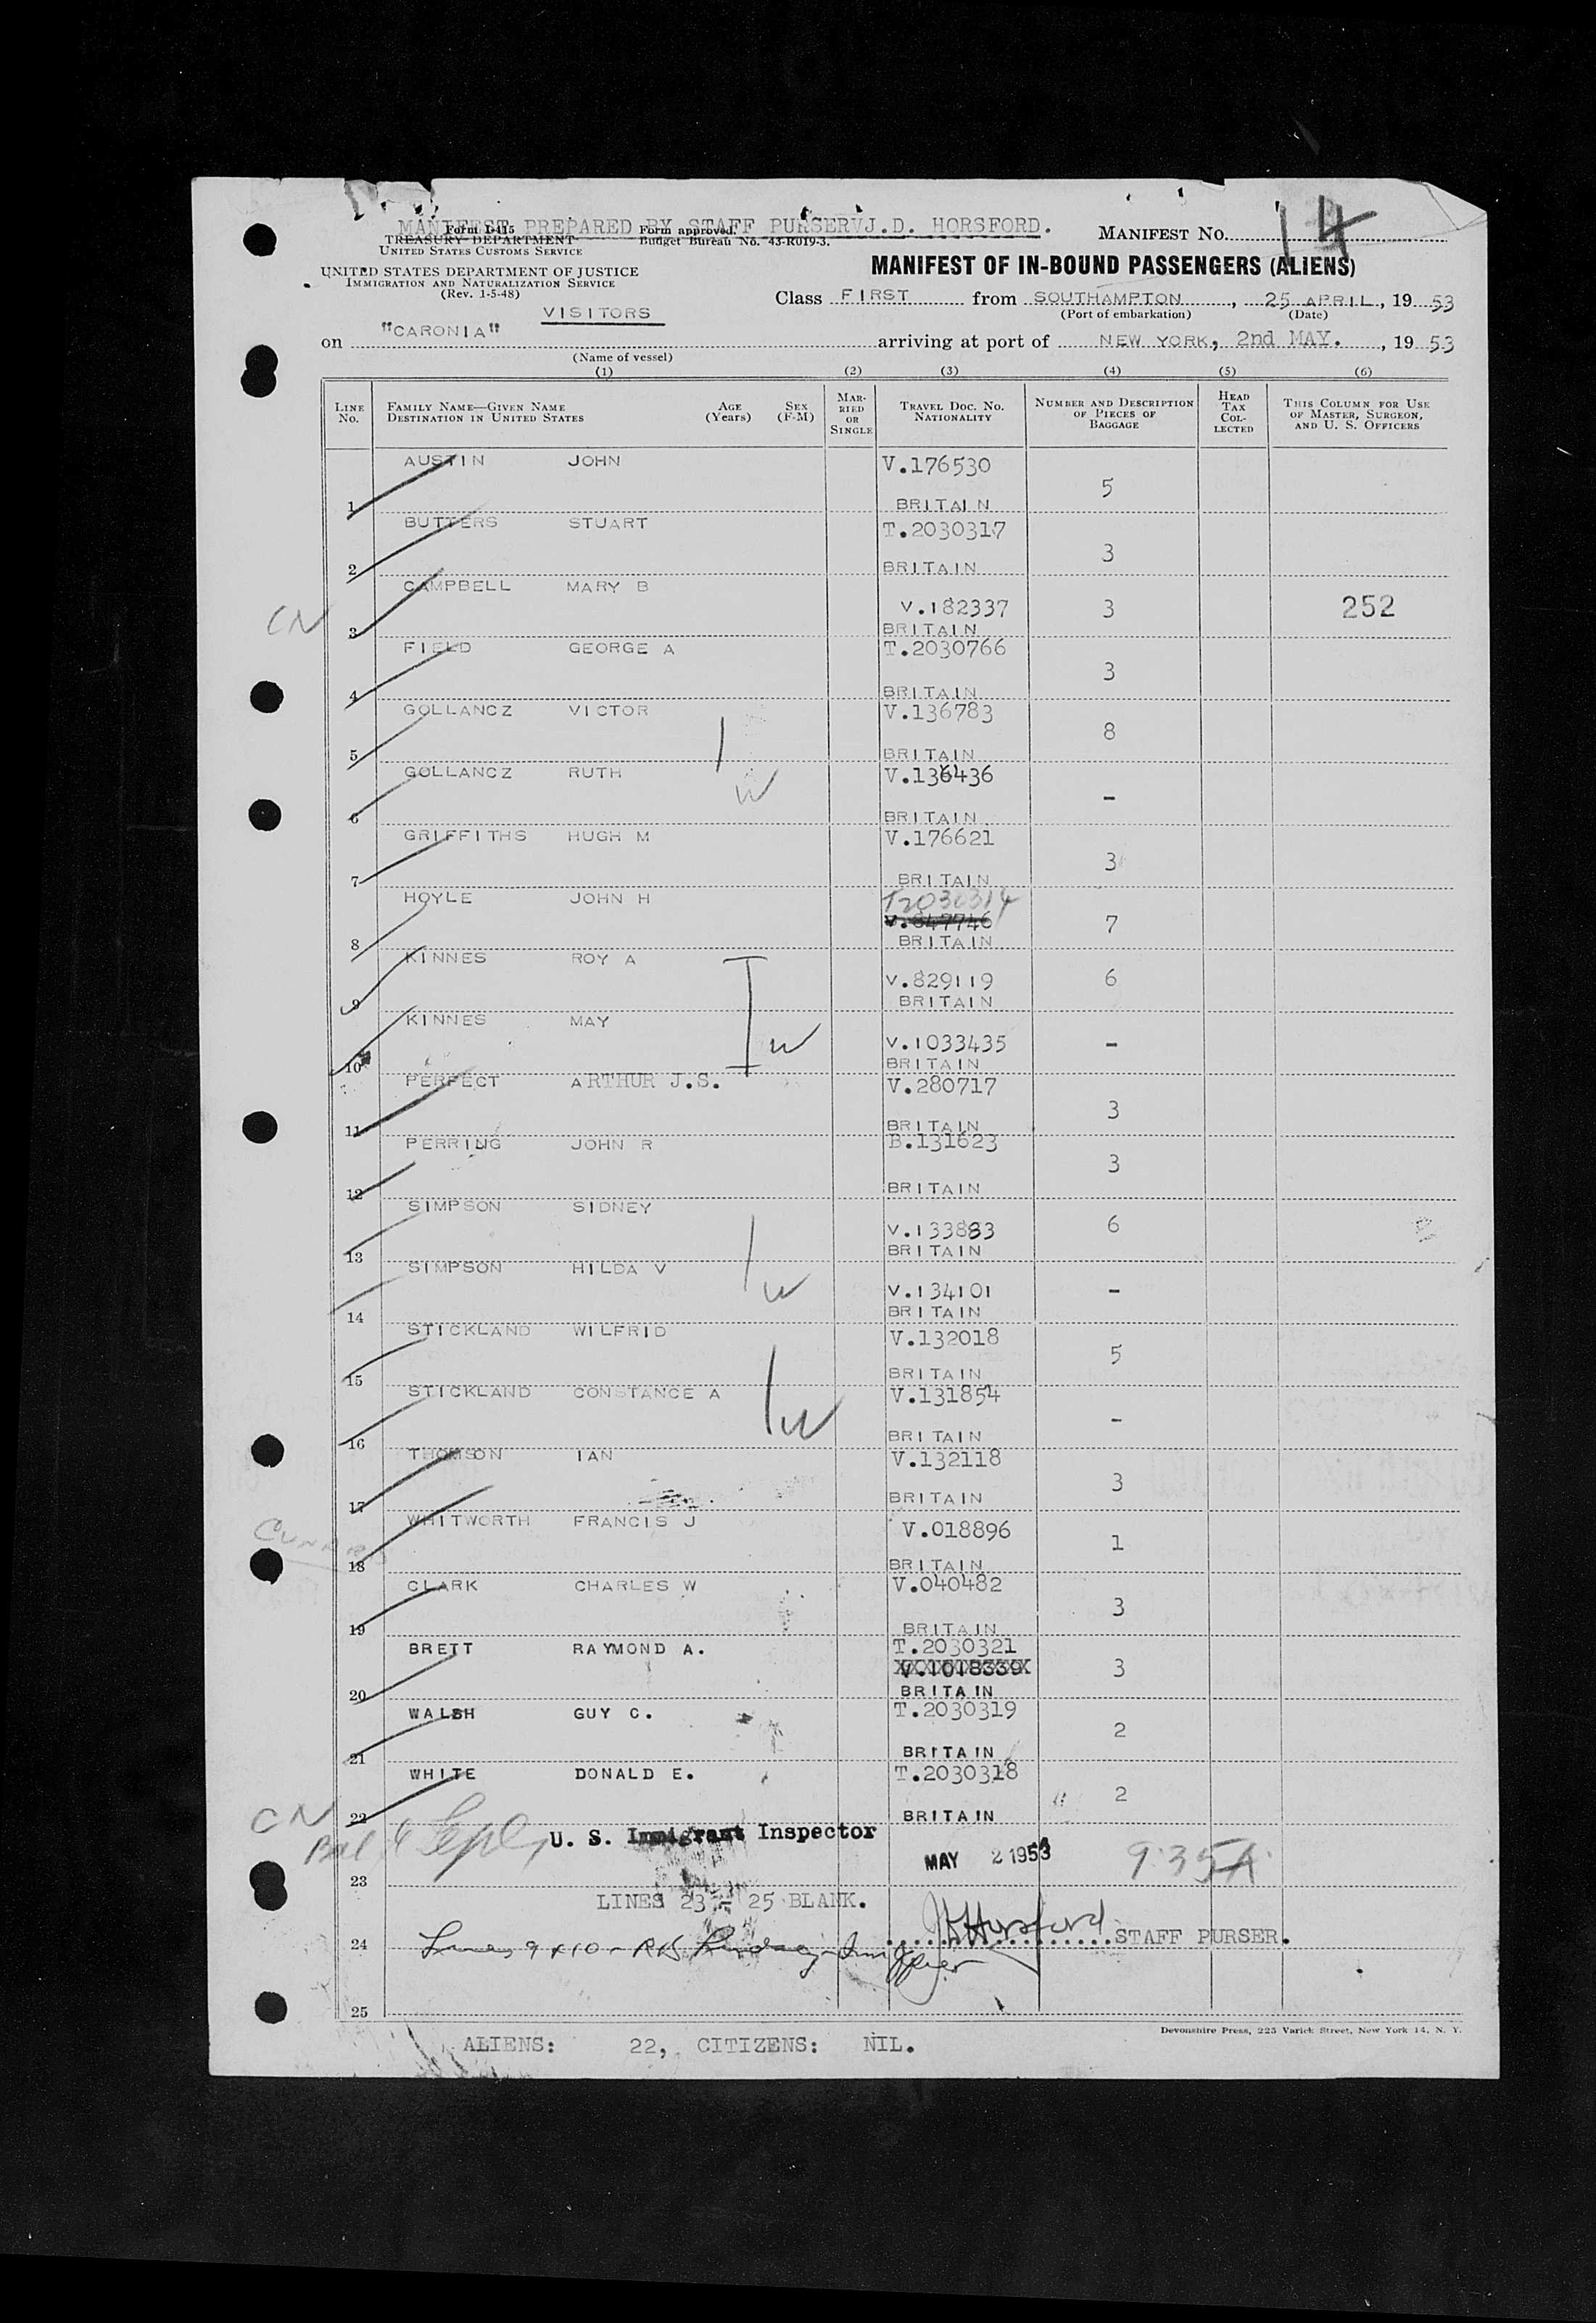 MANIFEST PREPARED BY STAFF PURSER J.D. HORSFORD.
Form I-415
TREASURY DEPARTMENT
UNITED STATES CUSTOMS SERVICE
Form approved.
Budget Bureau No. 43-R019-3.
MANIFEST No. 14
UNITED STATES DEPARTMENT OF JUSTICE
IMMIGRATION AND NATURALIZATION SERVICE
(Rev. 1-5-48)
MANIFEST OF IN-BOUND PASSENGERS (ALIENS)
Class FIRST from SOUTHAMPTON, 25 APRIL, 1953
(Port of embarkation) (Date)
VISITORS
on "CARONIA" arriving at port of NEW YORK, 2nd MAY., 1953
(Name of vessel)
(1) (2) (3) (4) (5) (6)
LINE No. FAMILY NAME—GIVEN NAME DESTINATION IN UNITED STATES AGE (Years) SEX (F-M) MARRIED OR SINGLE TRAVEL DOC. NO. NATIONALITY NUMBER AND DESCRIPTION OF PIECES OF BAGGAGE HEAD TAX COLLECTED THIS COLUMN FOR USE OF MASTER, SURGEON, AND U. S. OFFICERS
1 AUSTIN JOHN V.176530 BRITAIN 5
2 BUTTERS STUART T.2030317 BRITAIN 3
CN 3 CAMPBELL MARY B V.182337 BRITAIN 3 252
4 FIELD GEORGE A T.2030766 BRITAIN 3
5 GOLLANCZ VICTOR V.136783 BRITAIN 8
6 GOLLANCZ RUTH W V.136436 BRITAIN -
7 GRIFFITHS HUGH M V.176621 BRITAIN 3
8 HOYLE JOHN H T2030314 V.847746 BRITAIN 7
9 KINNES ROY A V.829119 BRITAIN 6
10 KINNES MAY W V.1033435 BRITAIN -
11 PERFECT ARTHUR J.S. V.280717 BRITAIN 3
12 PERRING JOHN R B.131623 BRITAIN 3
13 SIMPSON SIDNEY V.133883 BRITAIN 6
14 SIMPSON HILDA V W V.134101 BRITAIN -
15 STICKLAND WILFRID V.132018 BRITAIN 5
16 STICKLAND CONSTANCE A W V.131854 BRITAIN -
17 THOMSON IAN V.132118 BRITAIN 3
CUNARD 18 WHITWORTH FRANCIS J V.018896 BRITAIN 1
19 CLARK CHARLES W V.040482 BRITAIN 3
20 BRETT RAYMOND A. T.2030321 V.1018339 BRITAIN 3
21 WALSH GUY C. T.2030319 BRITAIN 2
CN 22 WHITE DONALD E. T.2030318 BRITAIN 2
U. S. Immigrant Inspector
MAY 2 1953 9:35A
23
LINES 23 - 25 BLANK.
JHorsford STAFF PURSER.
24
Lines 9 & 10
25
Devonshire Press, 225 Varick Street, New York 14, N. Y.
ALIENS: 22, CITIZENS: NIL.